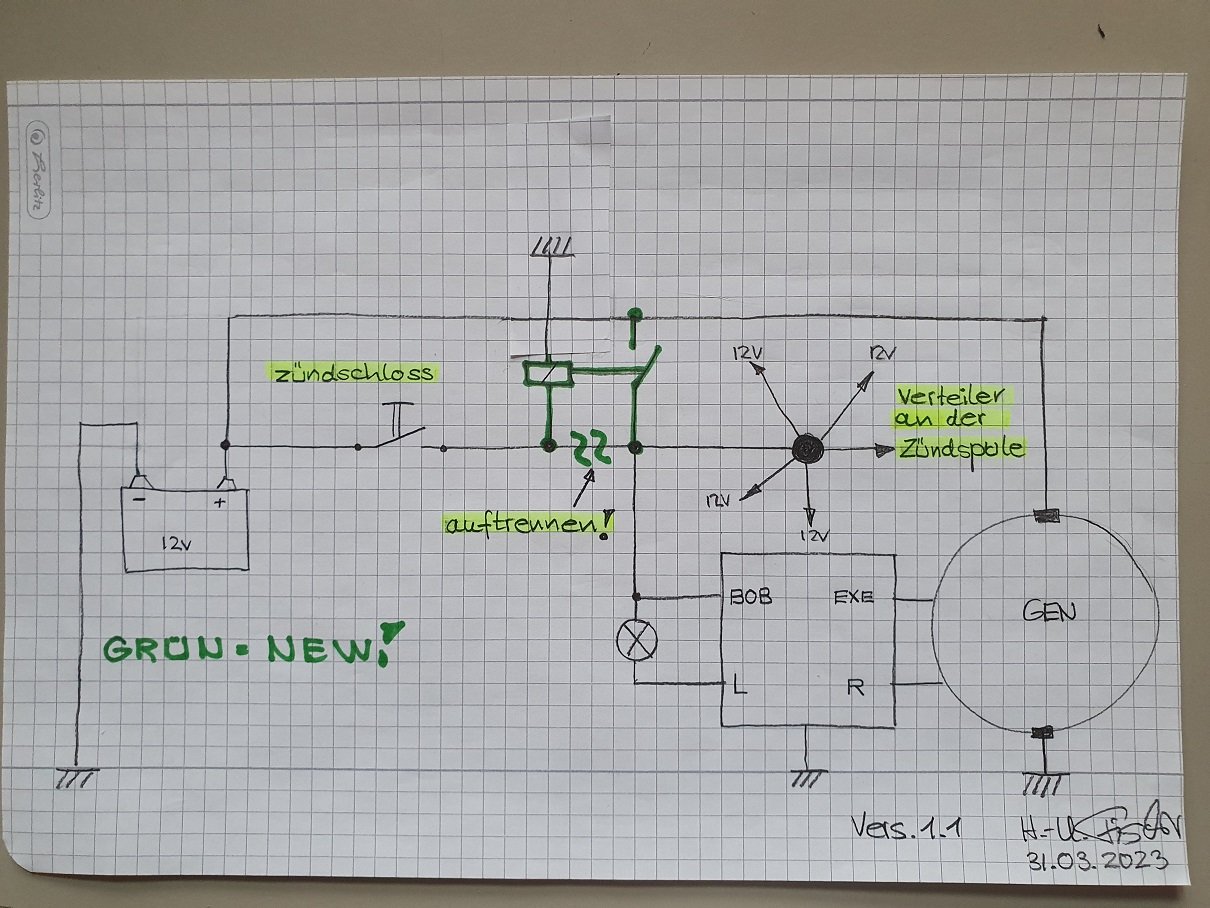 Berlitz
zündschloss
12V
12V
Verteiler
an der
Zündspule
12V
12V
auftrennen!
-
+
12V
BOB
EXE
GEN
L
R
GRÜN = NEW!
Vers. 1.1
H.-U. Fischer
31.03.2023